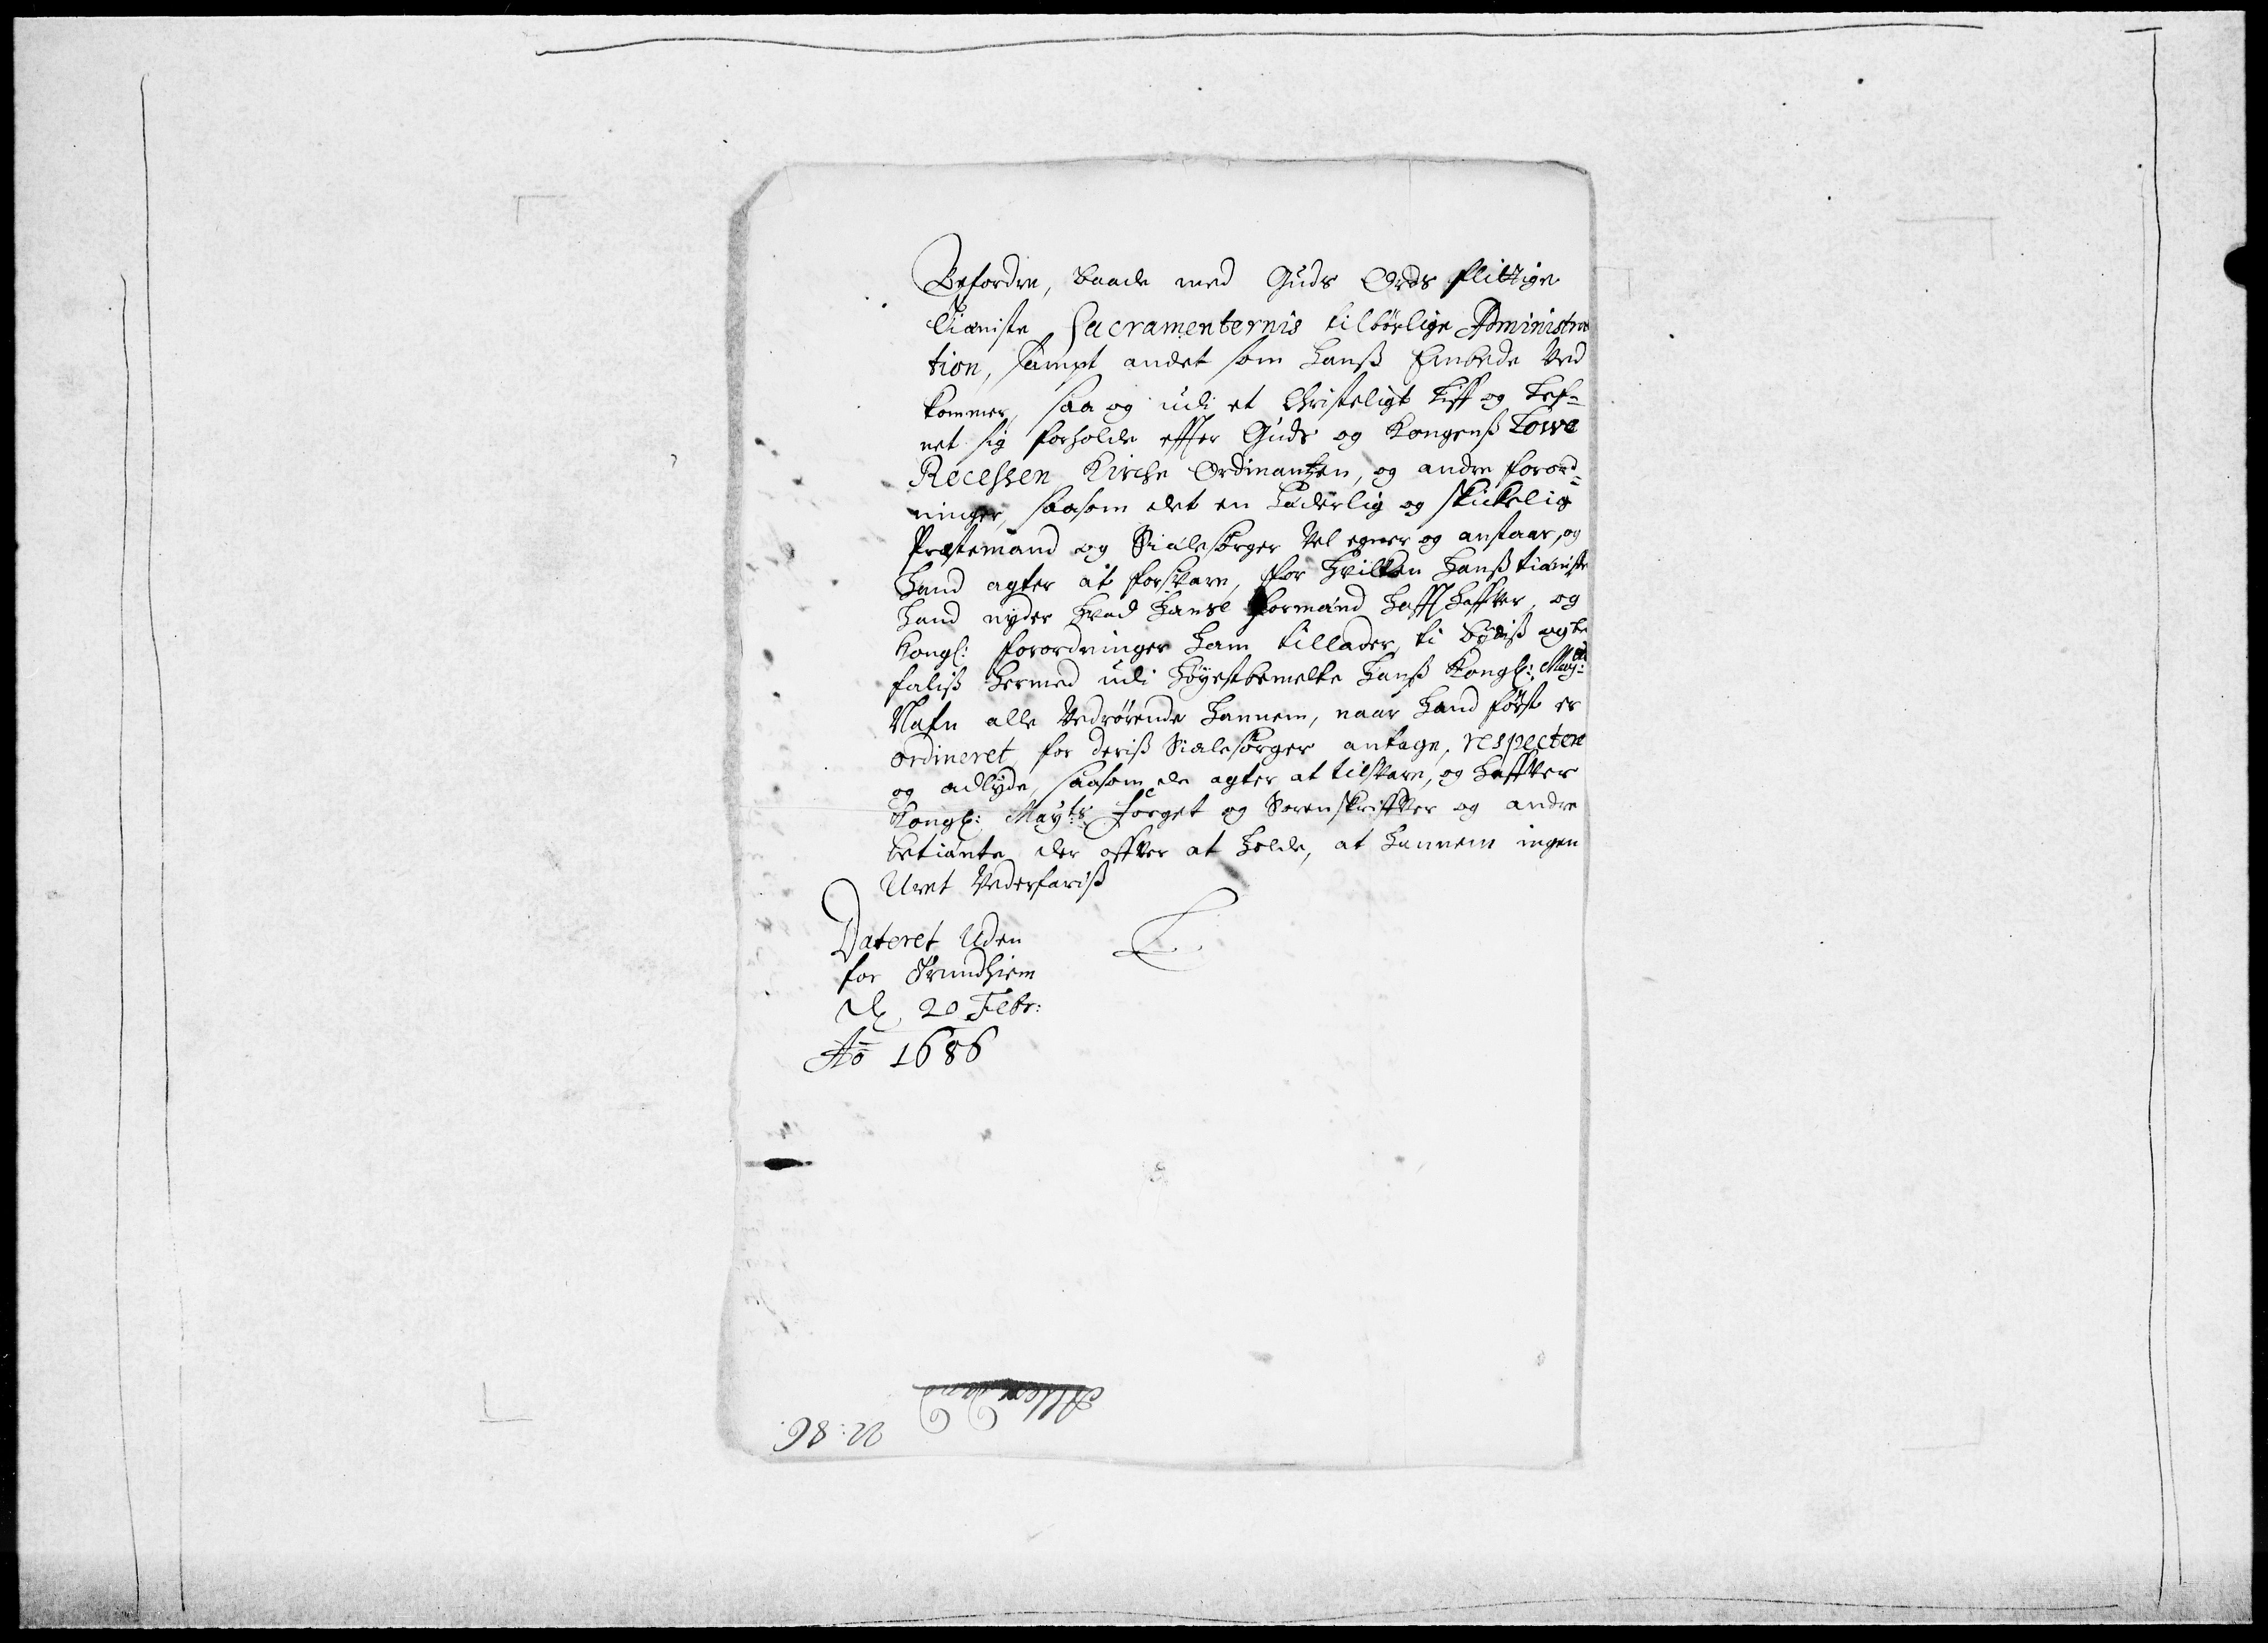 Befordre, baade med Guds Ords flittige
tieniste Sacramenternis tilbørlige Administra
tion, sampt andet som hans Embede Ved
kommer, saa og udi et Christeligt Liff og Lef-
net sig forholde effter Guds og Kongenß Lowe
Recessen Kirche Ordinantzen, og andre forord-
ninger, saasom det en hæderlig og skickelig
Præstemand og Sialesørger Vel egner og anstaar, og
hand agter at forsvare, for hvilken hanß tieniste
hand nyder hvad hanse formand hafft haffver, og
Kongl: forordninger ham tillader, ti bydiß og be
faliß hermed udi høyestbemelte hanß Kongl: May:ts
Nafn alle Vedrørende hannem, naar hand først er
ordineret, for deriß Sialesørger antage, respectere
og adlyde, saasom de agter at tilsvare, og haffver
Kongl: May:ts foeget og Sorenskriffver og andre
betiente der offver at holde, at hannem ingen
Uret Vederfariß
Dateret Uden
for Trundhiem
d. 20 Febr:
Ao 1686
22: 86.